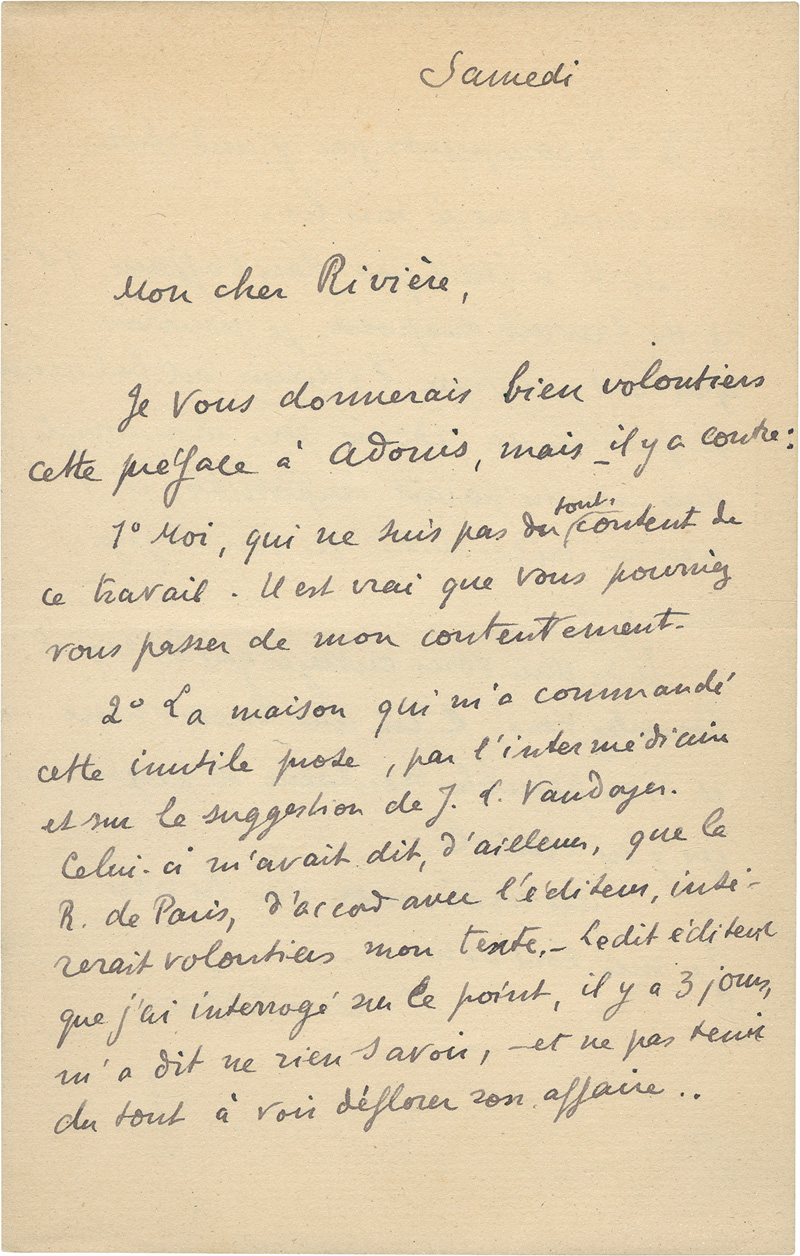 Samedi
Mon cher Rivière,
Je vous donnerais bien volontiers
cette préface à Adonis, mais il y a contre:
1° Moi, qui ne suis pas du tout content de
ce travail. Il est vrai que vous pourriez
vous passer de mon contentement.
2° La maison qui m'a commandé
cette inutile prose, par l'intermédiaire
et sur le suggestion de J. L. Vaudoyer.
Celui-ci m'avait dit, d'ailleurs, que la
R. de Paris, d'accord avec l'éditeur, insé-
rerait volontiers mon texte. – Ledit éditeur
que j'ai interrogé sur ce point, il y a 3 jours,
m'a dit ne rien savoir, – et ne pas tenir
du tout à voir déflorer son affaire ..